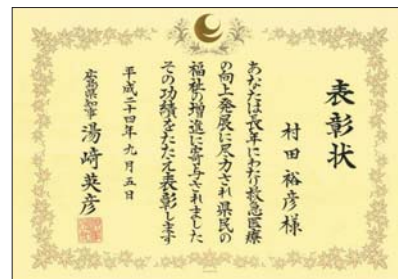 表彰状
村田裕彦様
あなたは長年にわたり救急医療
の向上発展に尽力され県民の
福祉の増進に寄与されました
その功績をたたえ表彰します
平成二十四年九月五日
広島県知事 湯﨑英彦